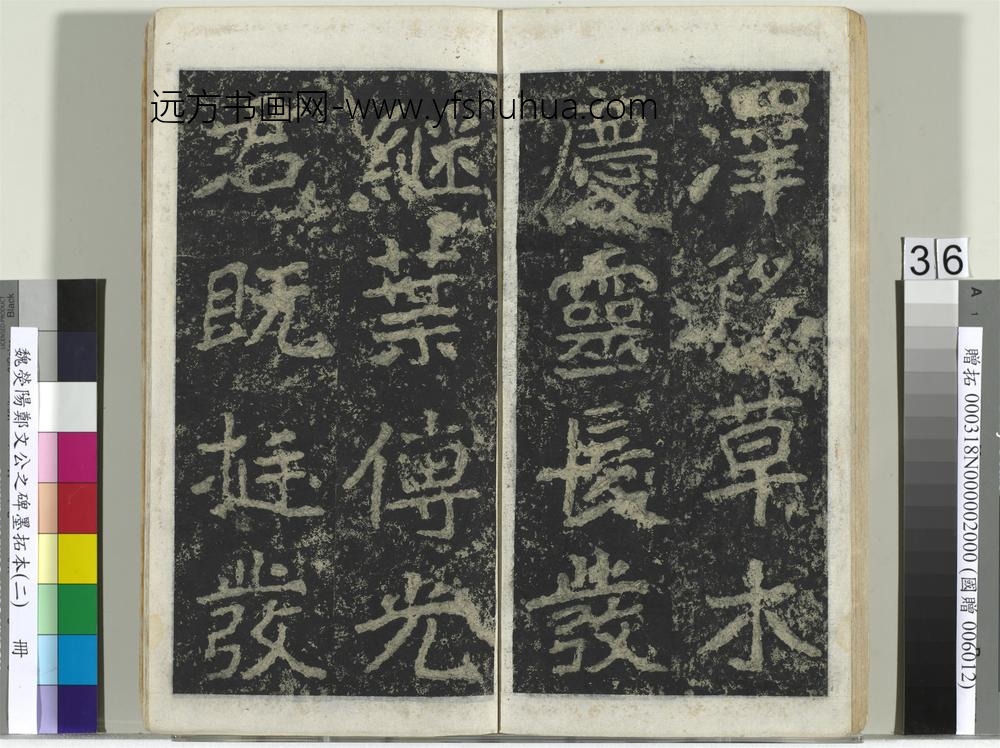 澤移草木
慶靈長發
繼葉傳光
君既挺發
远方书画网-www.yfshuhua.com
36
魏滎陽鄭文公之碑墨拓本(二) 冊
贈拓 000318N000002000 (國贈 006012)
Black
A
1